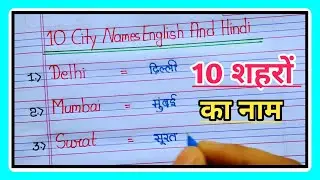 10 City Names English And Hindi
1.) Delhi = दिल्ली
2.) Mumbai = मुंबई
3.) Surat = सूरत
10 शहरों
का नाम